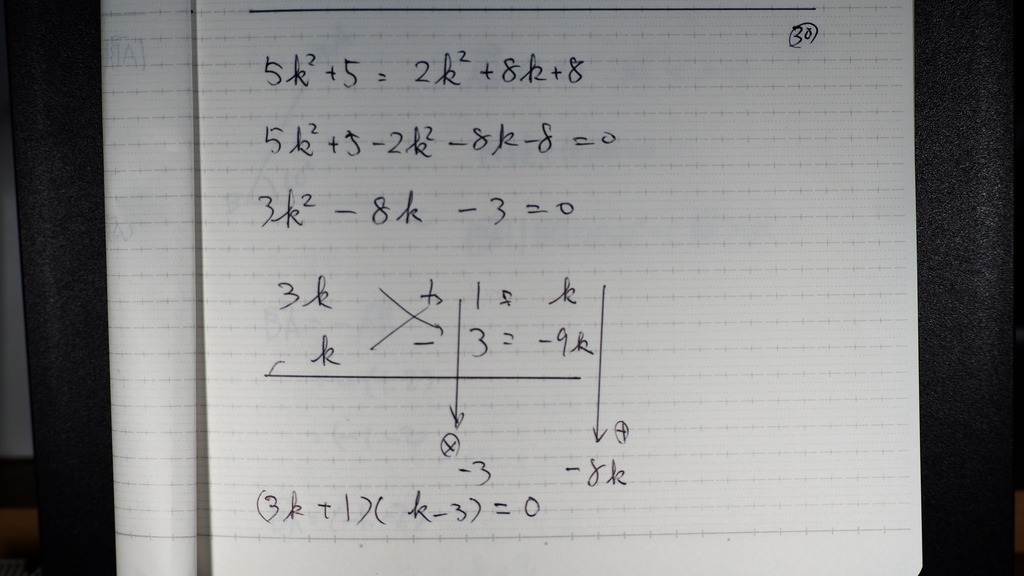 30
5k² + 5 = 2k² + 8k + 8
5k² + 5 - 2k² - 8k - 8 = 0
3k² - 8k - 3 = 0
3k + 1 = k
k - 3 = -9k
⊗ ⊕
-3 -8k
(3k + 1)( k - 3) = 0